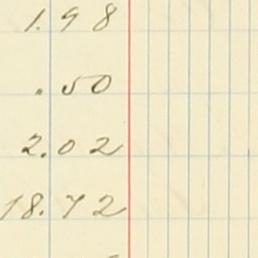 1.98
.50
2.02
18.72